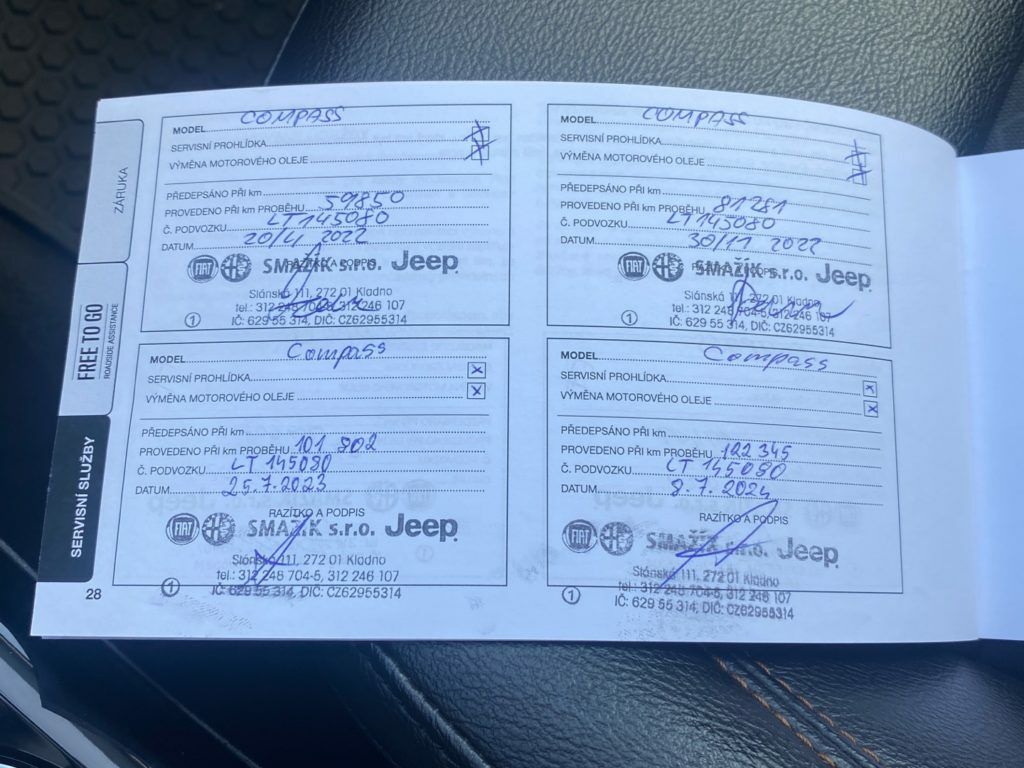 ZÁRUKA
FREE TO GO
ROADSIDE ASSISTANCE
SERVISNÍ SLUŽBY
28
MODEL COMPASS
SERVISNÍ PROHLÍDKA X
VÝMĚNA MOTOROVÉHO OLEJE X
PŘEDEPSÁNO PŘI km
PROVEDENO PŘI km PROBĚHU 59850
Č. PODVOZKU LT145080
DATUM 20/4 2022
RAZÍTKO A PODPIS
FIAT SMAŽÍK s.r.o. Jeep
Slánská 111, 272 01 Kladno
tel.: 312 248 704-5, 312 246 107
IČ: 629 55 314, DIČ: CZ62955314
1
MODEL COMPASS
SERVISNÍ PROHLÍDKA X
VÝMĚNA MOTOROVÉHO OLEJE X
PŘEDEPSÁNO PŘI km
PROVEDENO PŘI km PROBĚHU 81281
Č. PODVOZKU LT145080
DATUM 30/11 2022
RAZÍTKO A PODPIS
FIAT SMAŽÍK s.r.o. Jeep
Slánská 111, 272 01 Kladno
tel.: 312 248 704-5, 312 246 107
IČ: 629 55 314, DIČ: CZ62955314
1
MODEL Compass
SERVISNÍ PROHLÍDKA X
VÝMĚNA MOTOROVÉHO OLEJE X
PŘEDEPSÁNO PŘI km
PROVEDENO PŘI km PROBĚHU 101 902
Č. PODVOZKU LT 145080
DATUM 25.7.2023
RAZÍTKO A PODPIS
FIAT SMAŽÍK s.r.o. Jeep
Slánská 111, 272 01 Kladno
tel.: 312 248 704-5, 312 246 107
IČ: 629 55 314, DIČ: CZ62955314
1
MODEL Compass
SERVISNÍ PROHLÍDKA X
VÝMĚNA MOTOROVÉHO OLEJE X
PŘEDEPSÁNO PŘI km
PROVEDENO PŘI km PROBĚHU 122 345
Č. PODVOZKU LT 145080
DATUM 8.7.2024
RAZÍTKO A PODPIS
FIAT SMAŽÍK s.r.o. Jeep
Slánská 111, 272 01 Kladno
tel.: 312 248 704-5, 312 246 107
IČ: 629 55 314, DIČ: CZ62955314
1